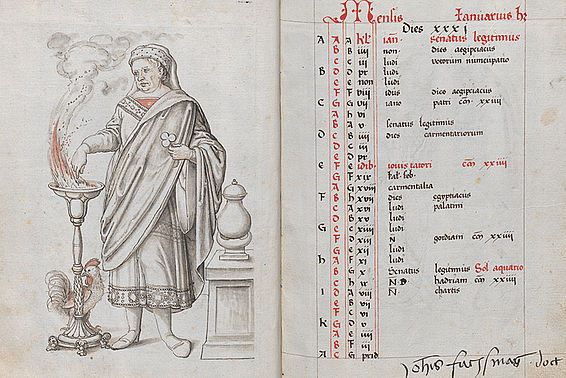 Mensis Ianuarius ht
Dies XXXI
A A A kl ian· Senatus legitimus
B B iiii non· dies aegiptiacus
C C iii ludi votorum nuncupatio
B D D pr ludi
E E non ludi
F F viii idus dies aegiptiacus
C G G vii iano patri cm̄ xxiiii
A h vi
D B A v senatus legitimus
C B iiii dies carmentariorum
D C iii
E D pr
e F E idib· iovis tatori cm̄ xxiiii
G F xix
A G xviii carmentalia
F B h xvii dies egyptiacus
C A xvi ludi palatini
D B xv ludi
G E C xiiii ludi
F D xiii N gordiani cm̄ xxiiii
G E xii ludi
h A F xi ludi
B G x Senatus legitimus Sol aquario
C h ix N̄ hadriani cm̄ xxiiii
I D A viii N̄· chartis
E B vii
F C vi
K G D v
A E iiii
B F iii
A C G prid
Johis